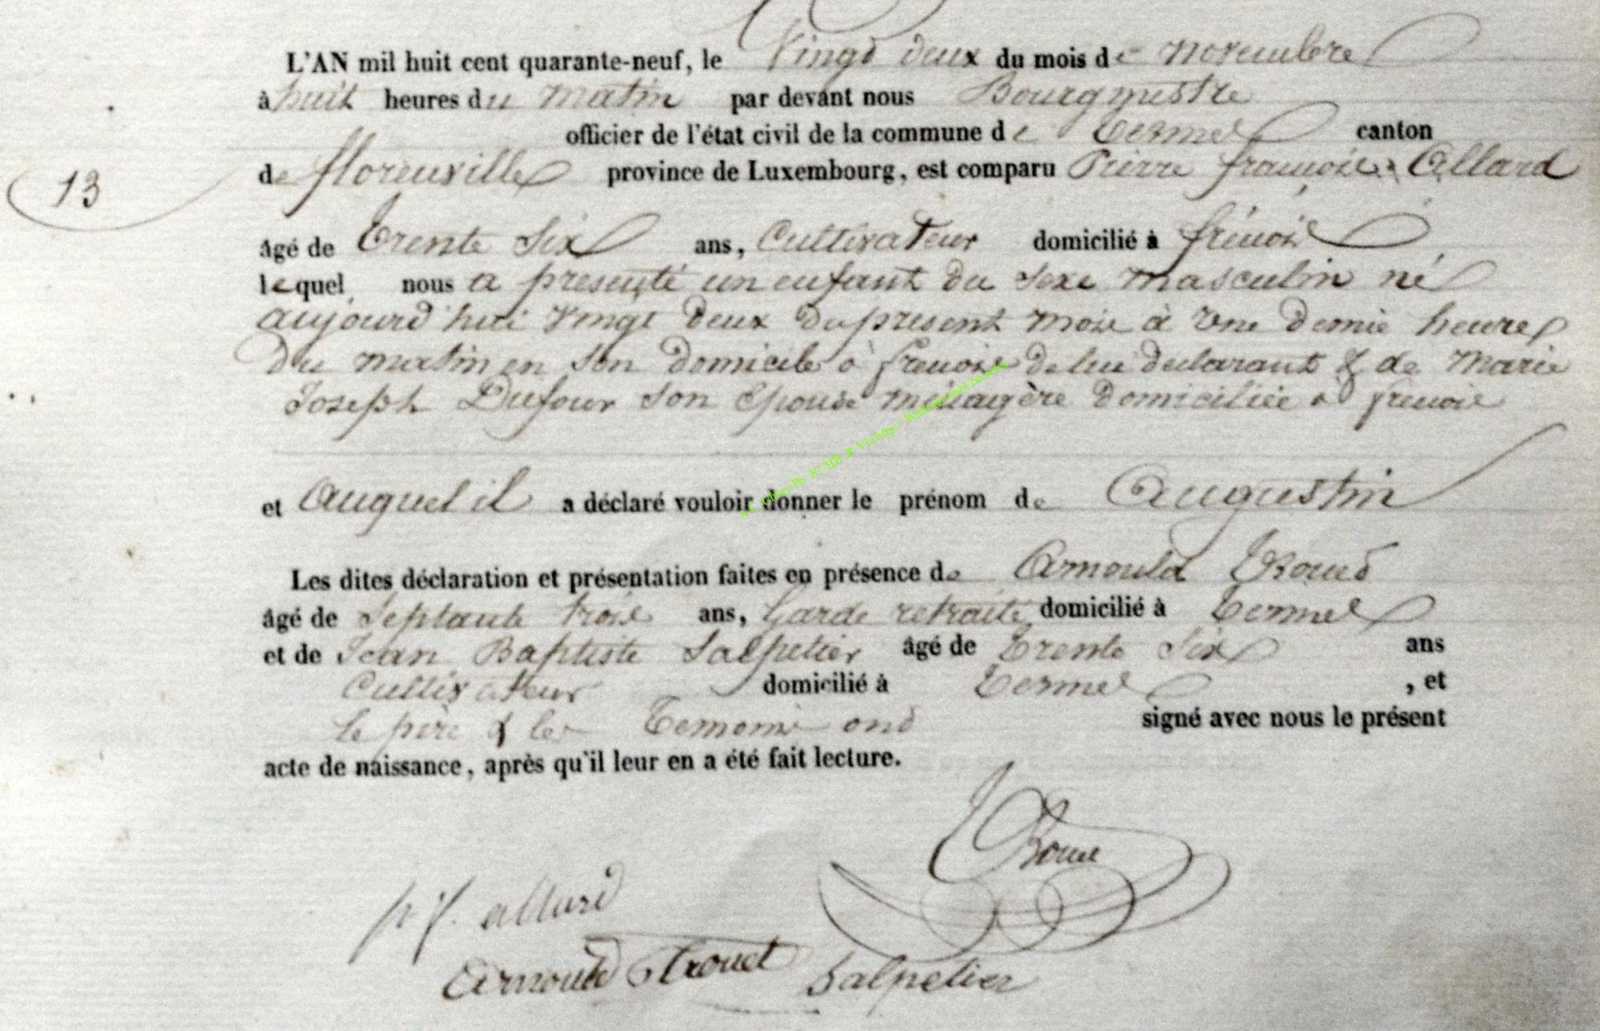 L'AN mil huit cent quarante-neuf, le Vingt deux du mois de novembre
à huit heures du matin par devant nous Bourgmestre
officier de l'état civil de la commune de Termes canton
de florenville province de Luxembourg, est comparu Pierre françois Allard
13
âgé de Trente six ans, Cultivateur domicilié à frénois
lequel nous a presenté un enfant du sexe masculin né
aujourd'hui vingt deux du present mois à une demie heure
du matin en son domicile à frenois de lui declarant & de Marie
Joseph Dufour son épouse ménagère domiciliée à frenois
et auquel il a déclaré vouloir donner le prénom de Augustin
Les dites déclaration et présentation faites en présence de Arnould
âgé de Septante trois ans, Garde retraité domicilié à Termes
et de Jean Baptiste Salpetier âgé de Trente Six ans
Cultivateur domicilié à Termes , et
le père & les Temoins ond signé avec nous le présent
acte de naissance, après qu'il leur en a été fait lecture.
p f. allard
Arnould Salpetier